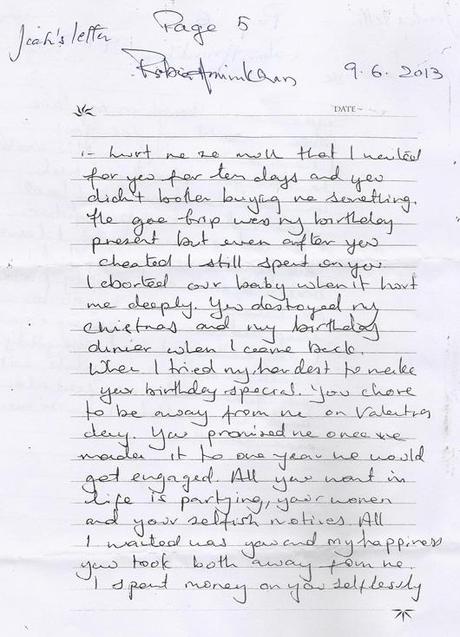 Page 5
Jiah's letter
Rabia Amin Khan
9.6.2013
DATE
:- hurt me so much that I waited
for you for ten days and you
didn't bother buying me something.
The goa trip was my birthday
present but even after you
cheated I still spent on you
I aborted our baby when it hurt
me deeply. You destroyed my
christmas and my birthday
dinner when I came back.
When I tried my hardest to make
your birthday special. You chose
to be away from me on Valentines
day. You promised me once we
made it to one year we would
get engaged. All you want in
life is partying, your women
and your selfish motives. All
I wanted was you and my happiness
you took both away from me.
I spent money on you selflessly